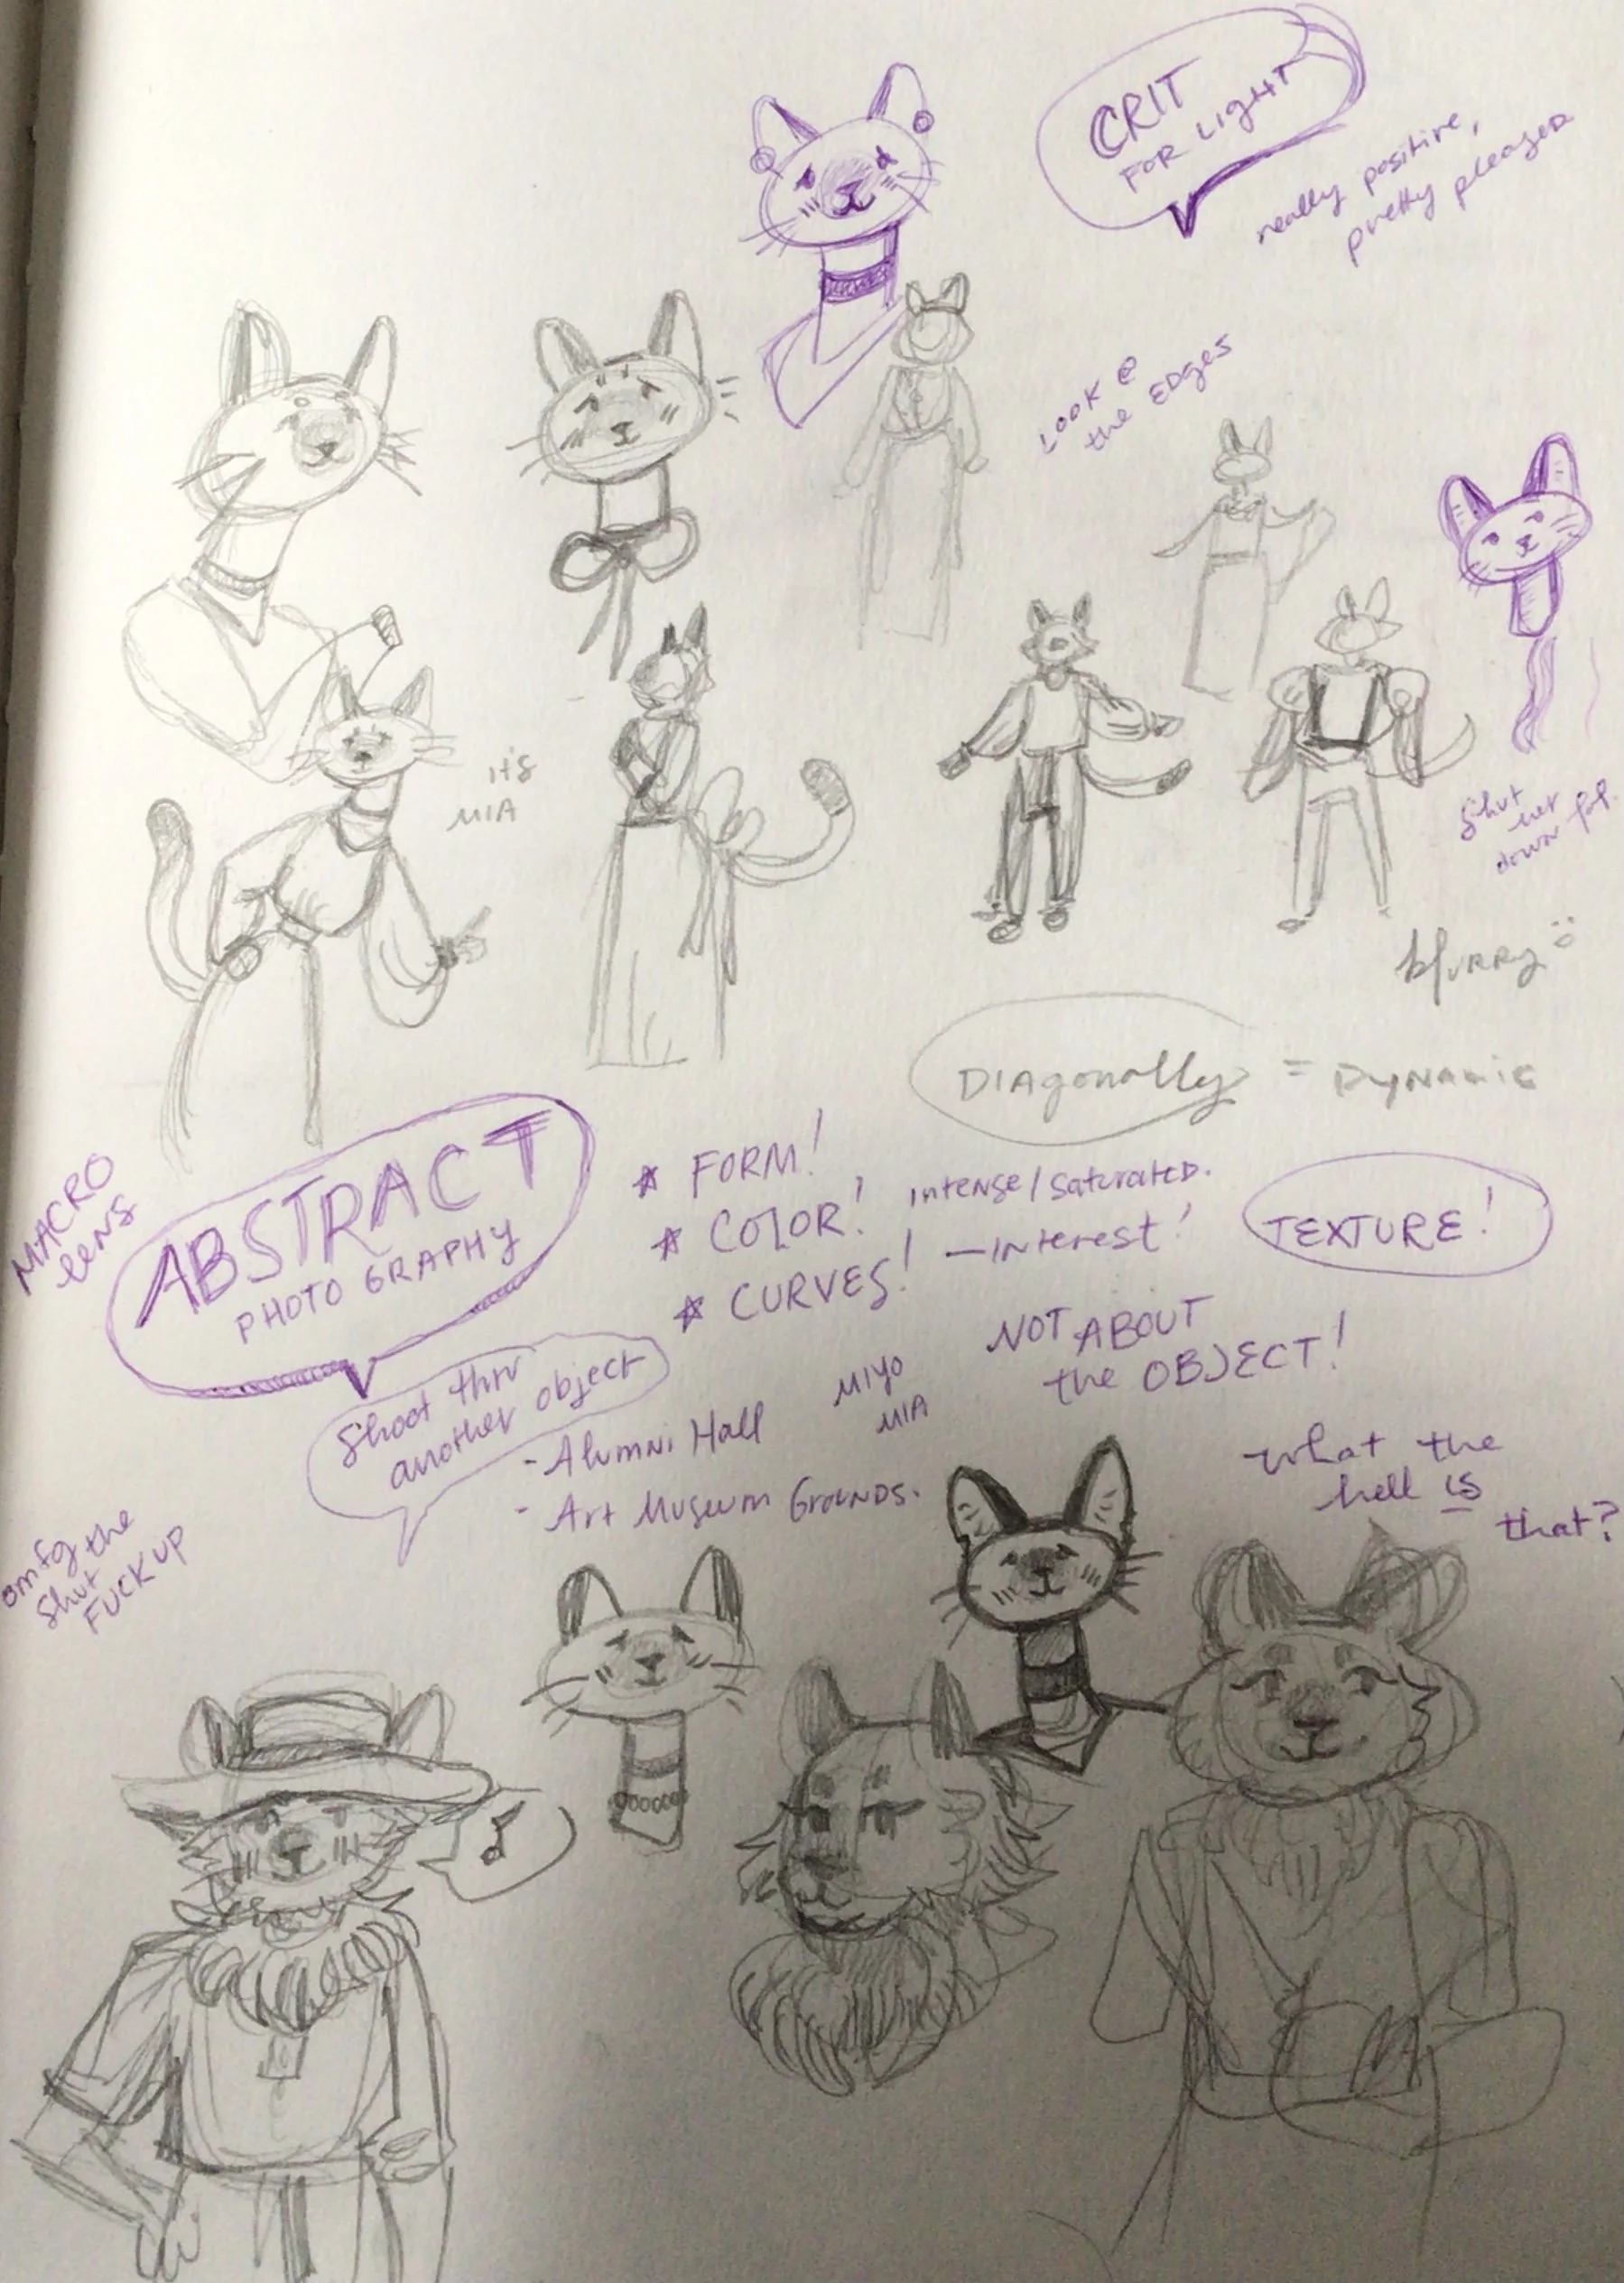 CRIT
FOR LIGHT
really positive,
pretty pleased
LOOK @
the EDges
it's
MIA
Shut
her
down
blurry :(
DIAgonally = DYNAMIC
MACRO
lens
ABSTRACT
PHOTOGRAPHY
* FORM!
* COLOR! intense/saturated.
* CURVES! - INterest!
TEXTURE!
NOT ABOUT
the OBJECT!
Shoot thru
another object
- Alumni Hall
- Art Museum GrouNDs.
MIYO
MIA
what the
hell is
that?
omfg the
Shut
FUCK UP